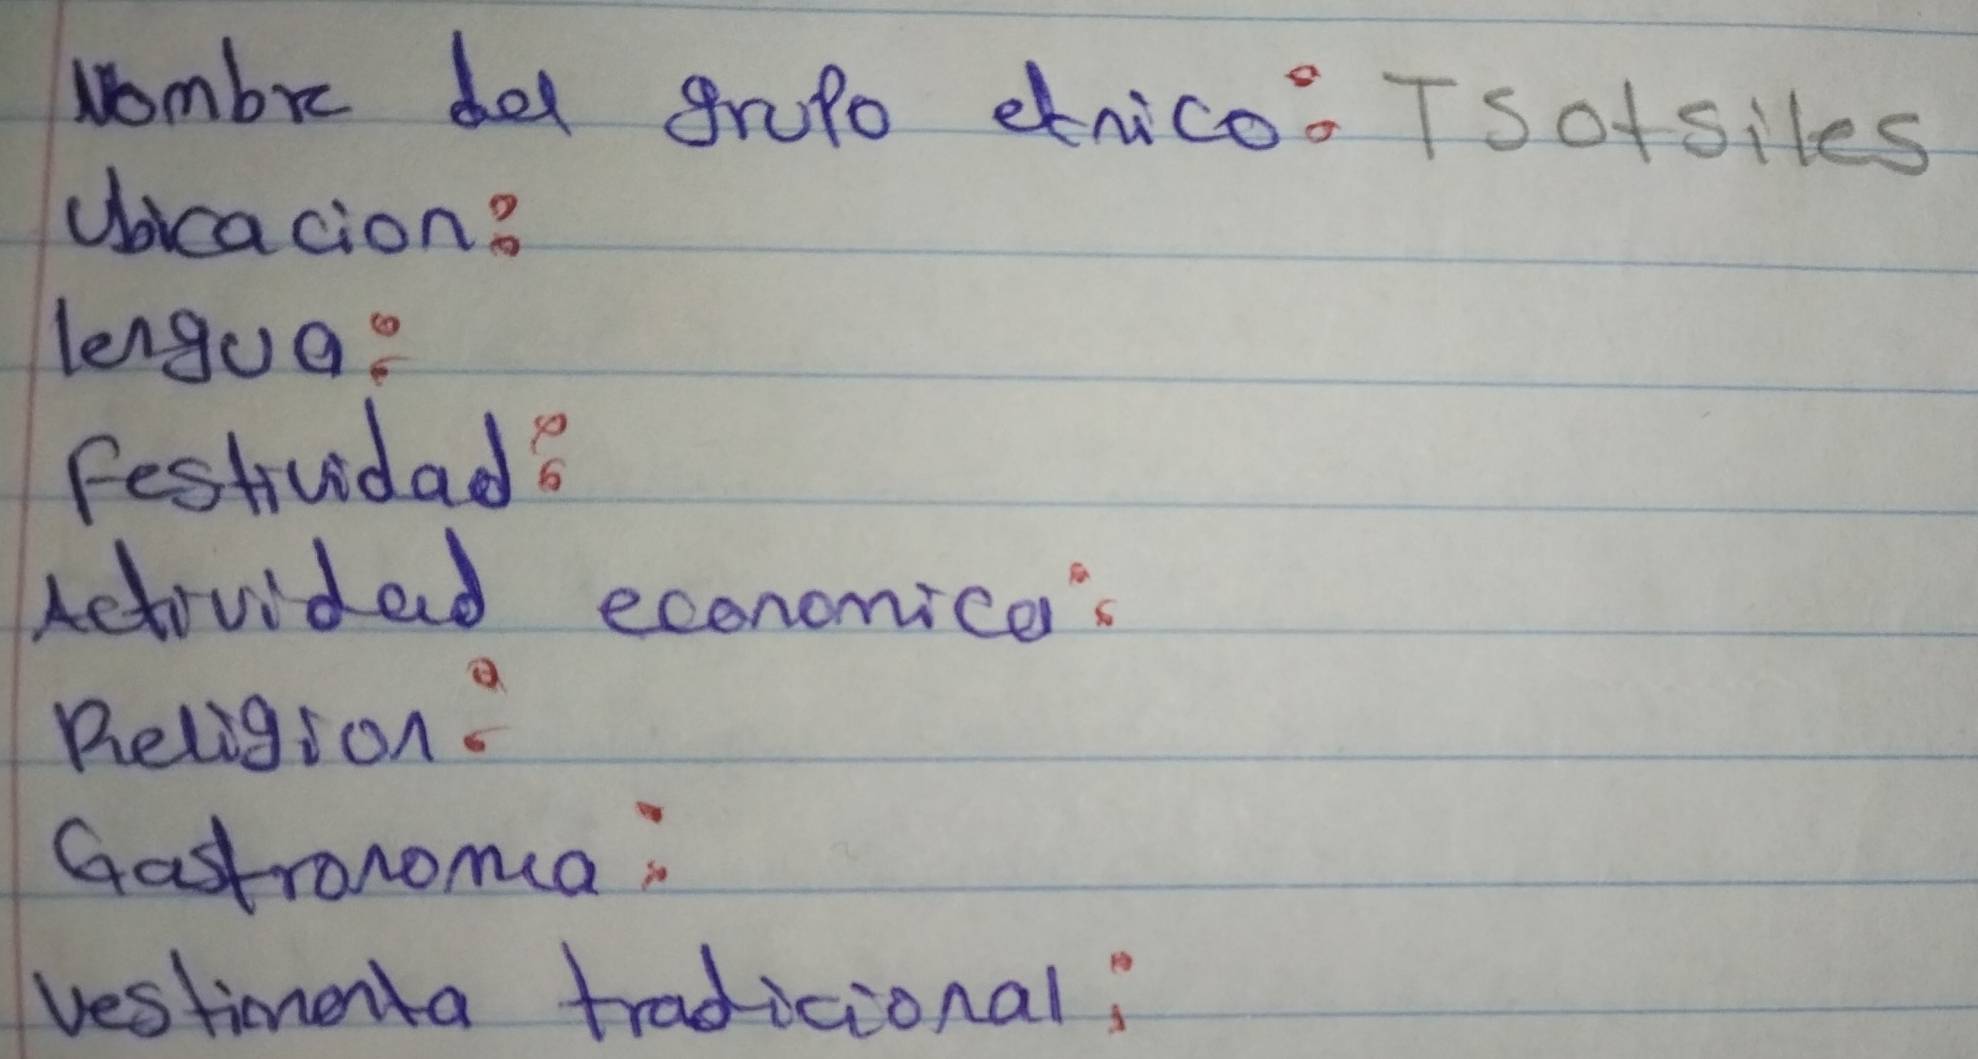 Nombre del grupo etnico: Tsotsiles
Ubicacion:
lengua:
Festividad:
Actividad economica:
Religion:
Gastronomia:
Vestimenta tradicional: